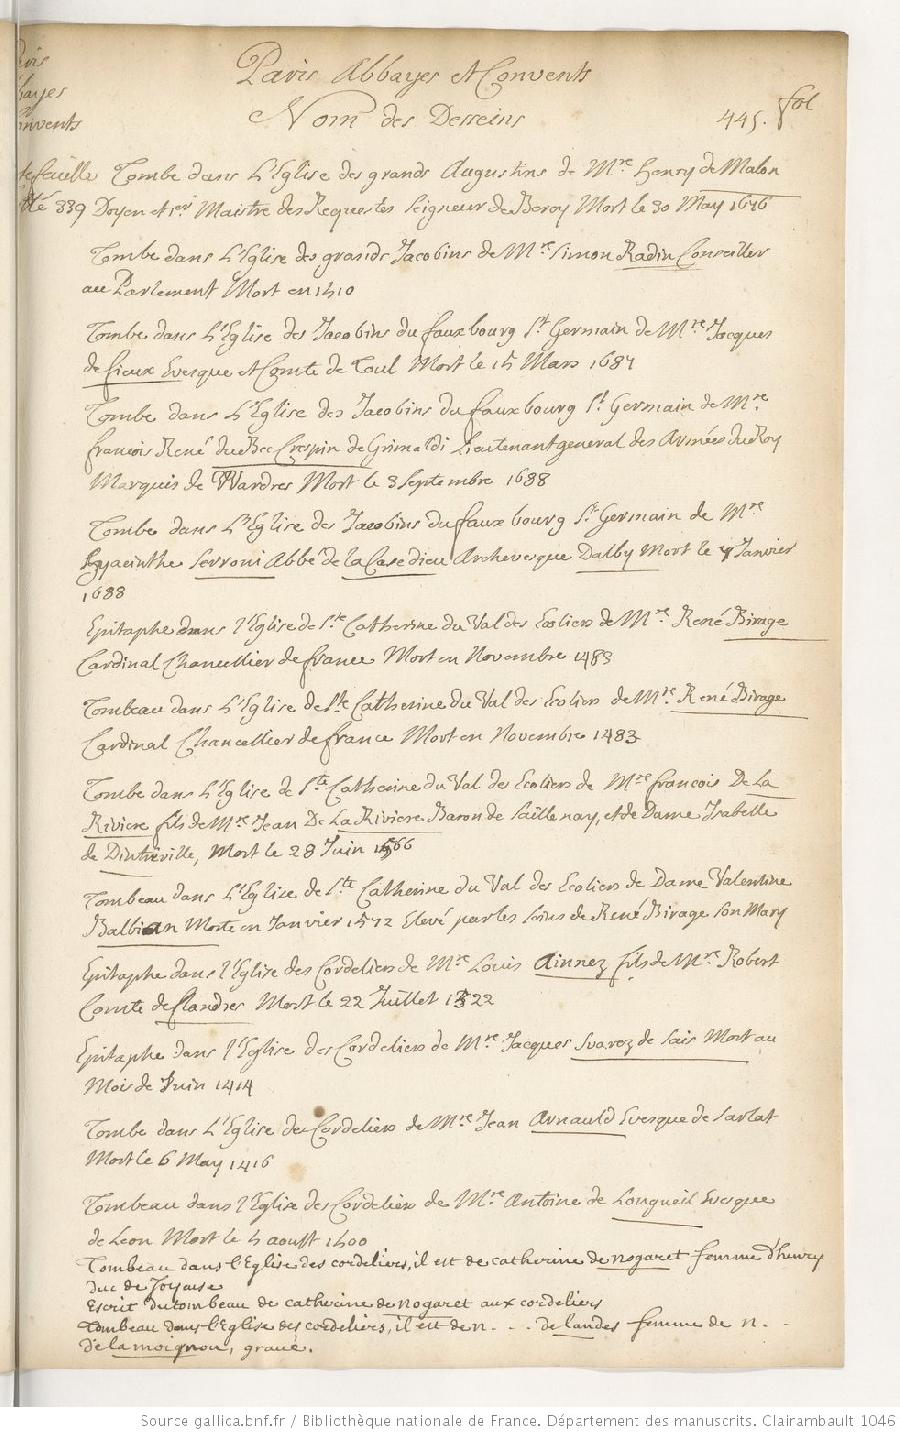 Paris Abbayes et Convents
Nom des Desseins
445. fol
bayes
nvents
Tombe dans L'Eglise des grands Augustins de Mre Henry de Malon
339 Doyen et 1er Maistre des Requestes Seigneur de Bercy Mort le 30 May 1646
Tombe dans L'Eglise des grands Jacobins de Mre Simon Radin Conseiller
au Parlement Mort en 1410
Tombe dans L'Eglise des Jacobins du fauxbourg St Germain de Mre Jacques
de fieux Evesque et Comte de Toul Mort le 15 Mars 1687
Tombe dans L'Eglise des Jacobins du fauxbourg St Germain de Mre
francois René du Bec Crespin de Grimaldi Lieutenant general des Armées du Roy
Marquis de Wardres Mort le 3 Septembre 1688
Tombe dans L'Eglise des Jacobins du faux bourg St Germain de Mre
hyacinthe Serroni Abbé de la Casedieu Archevesque Dalby Mort le 7 Janvier
1688
Epitaphe dans l'Eglise de Ste Catherine du Val des Ecoliers de Mre René Birage
Cardinal Chancellier de france Mort en Novembre 1483
Tombeau dans L'Eglise de Ste Catherine du Val des Ecoliers de Mre René Birage
Cardinal Chancellier de france Mort en Novembre 1483
Tombe dans L'Eglise de Ste Catherine du Val des Ecoliers de Mre francois De La
Riviere fils de Mre Jean De La Riviere Baron de Saillenay, et de Dame Isabelle
de Dinteville, Mort le 28 Juin
Tombeau dans L'Eglise de Ste Catherine du Val des Ecoliers de Dame Valentine
Balbian Morte en Janvier 1572 Elevé par les soins de René Birage son Mary
Epitaphe dans l'Eglise des Cordeliers de Mre Louis Ainnez fils de Mre Robert
Comte de flandres Mort le 22 Juillet 1322
Epitaphe dans l'Eglise des Cordeliers de Mre Jacques Suarez de Sais Mort au
Mois de Juin 1414
Tombe dans L'Eglise des Cordeliers de Mre Jean Arnauld Evesque de Sarlat
Mort le 6 May 1416
Tombeau dans l'Eglise des Cordeliers de Mre Antoine de Longueil Evesque
de Leon Mort le 4 aoust 1400
Tombeau dans l'Eglise des cordeliers, il est de catherine de nogaret femme d'henry
duc de Joyeuse
Escrit du tombeau de catherine de nogaret aux cordeliers
Tombeau dans l'Eglise des cordeliers, il est de n. . . de landes femme de n. .
de lamoignon, gravé.
Source gallica.bnf.fr / Bibliothèque nationale de France. Département des manuscrits. Clairambault 1046